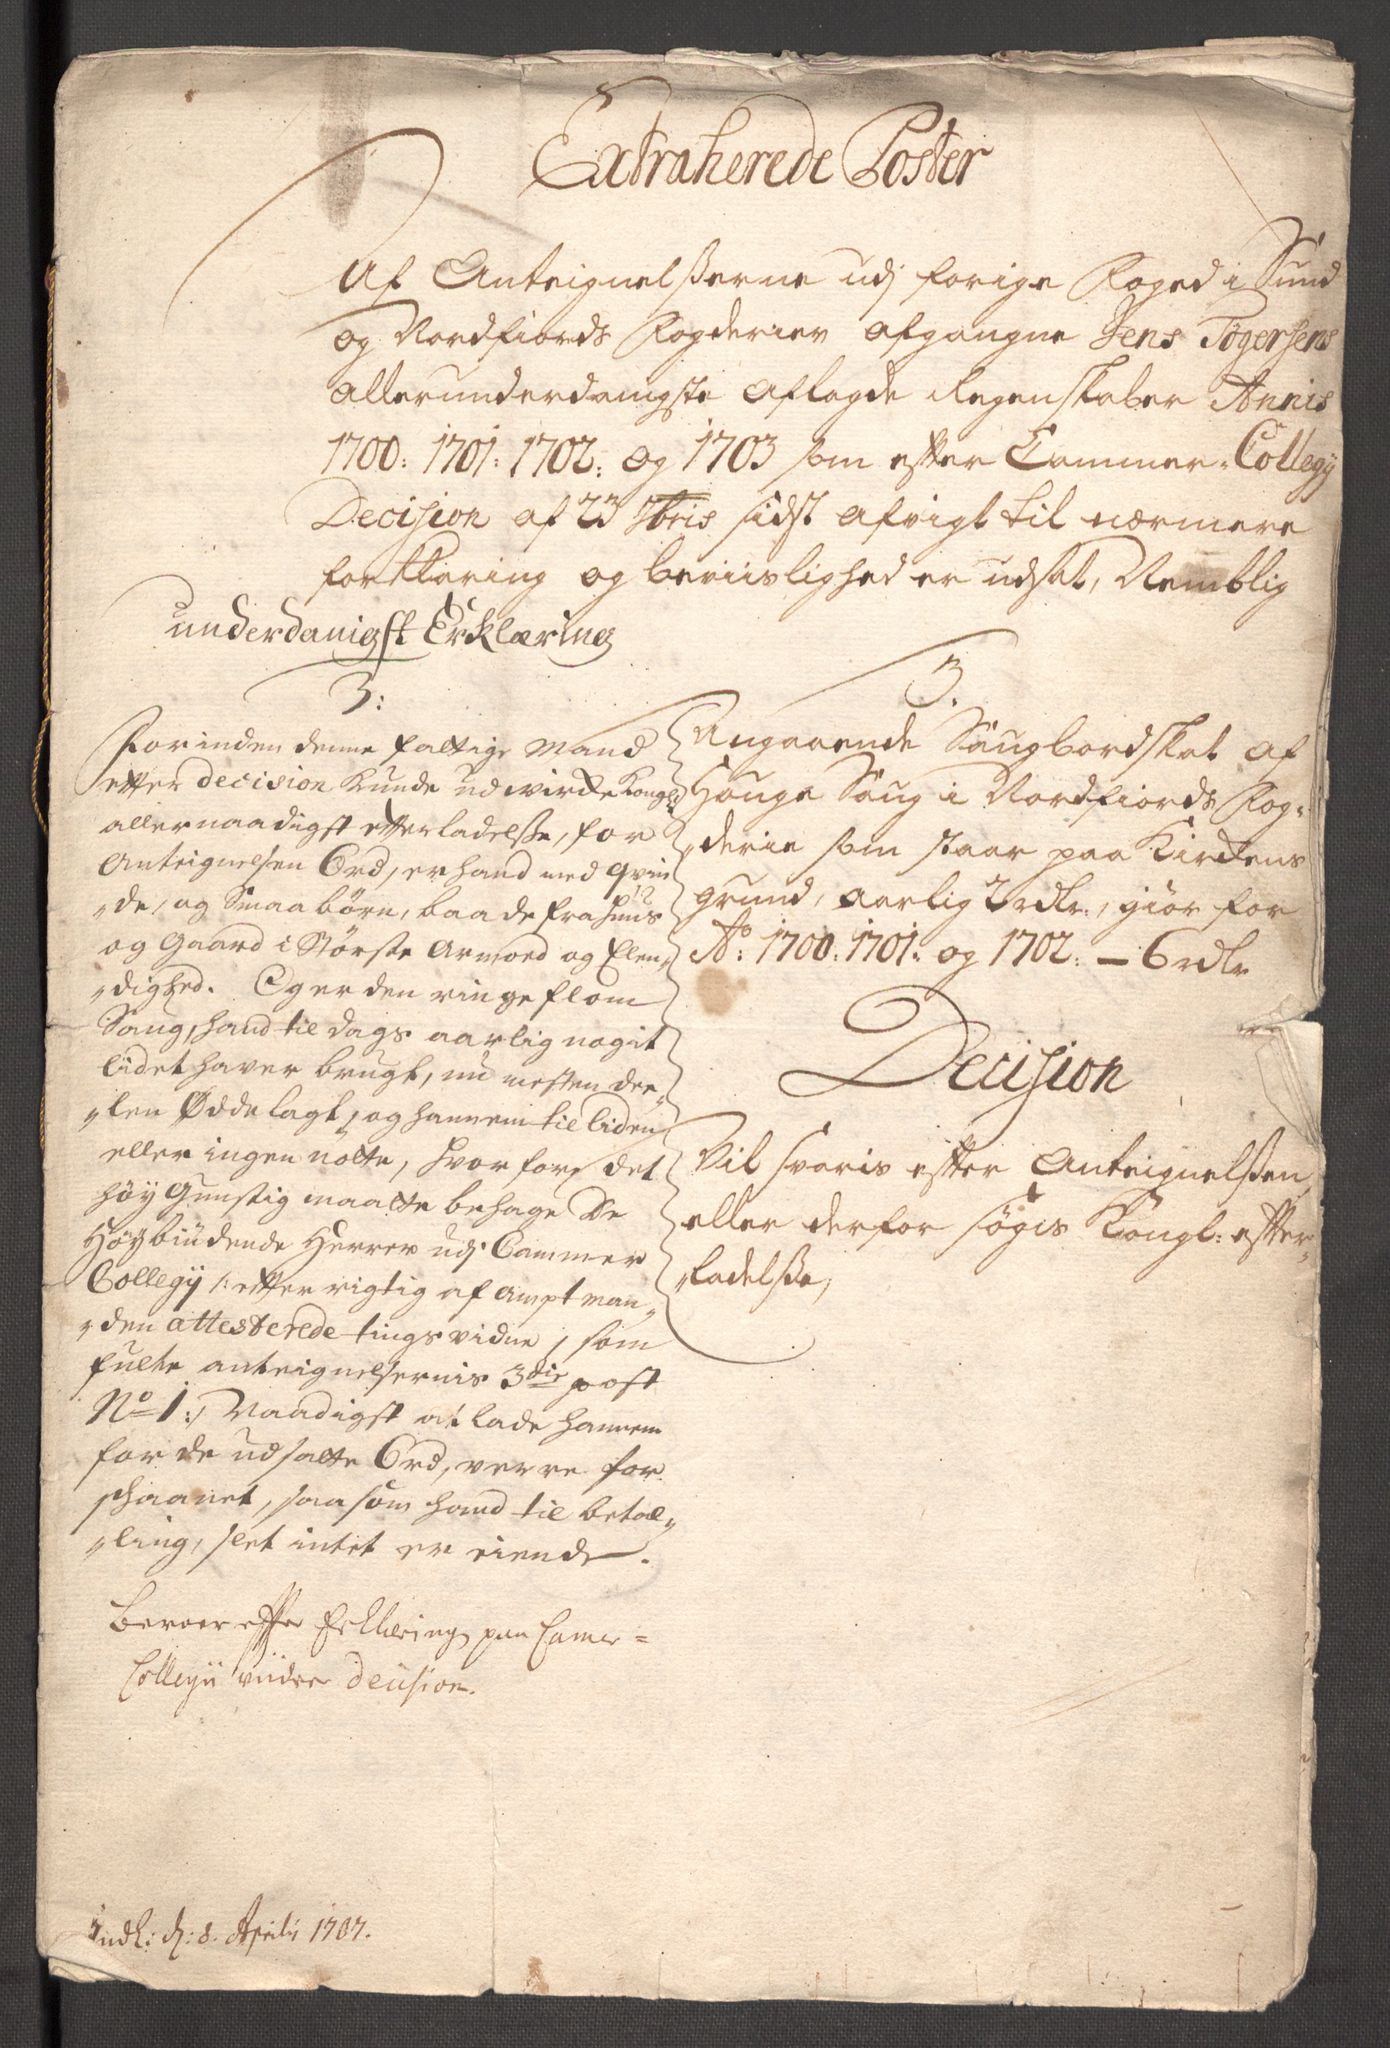 Extraherede Poster
Af Anteignelsserne udj forige Foged i Sund
og Nordfiords Fogderier afgangne Jens Tøgersens
allerunderdanigste aflagde Regenskaber Annis
1700: 1701: 1702: og 1703 som efter Cammer-Collegy
Decision af 23 7bris sidst afvigt til nærmere
forkklaring og beviislighed er udsat, Nemblig
underdanigst Erklæring
3:
Forinden denne fattige Mand
etter decision kunde udwircke Kongl:
allernaadigst etterladelsse, for
Anteignelsen 6rd, er hand med qvin
„de, og Smaa børn, baade fra huus
og Gaard i Største Armoed og Elen„
„dighed. Og er den ringe flom
Saug, hand til dags aarlig nogit
lidet haver brugt, nu mesten dee„
„len Ødde lagt, og hannem til liden
eller ingen nøtte, hvorfore det
høy Gunstig maatte behage De
Høybiudende Herrer udj Cammer
Collegy /: etter rigtig af Amptman„
„den attesterede tingsvidne, som
fulte anteignelsernis 3die post
No 1:, Naadigst at lade hannem
for de udsatte 6rd, verre for
schaanet, saa som hand til betal„
„ling, slet intet er eiende.
Beroer effter Erklæring paa Camer=
Collegii viidere Decision.
Indl: d: 8. Aprily 1707.
3.
Angaaende Saugbordskat af
Houge Saug i Nordfiords Fog„
„derie som staar paa Kirckens
grund, aarlig 2 rdlr:, giør for
Ao: 1700: 1701: og 1702: — 6 rdlr
Decision
Vil svaris efter Anteignelssen,
eller derfor søgis Kongl: efter„
„ladelsse,